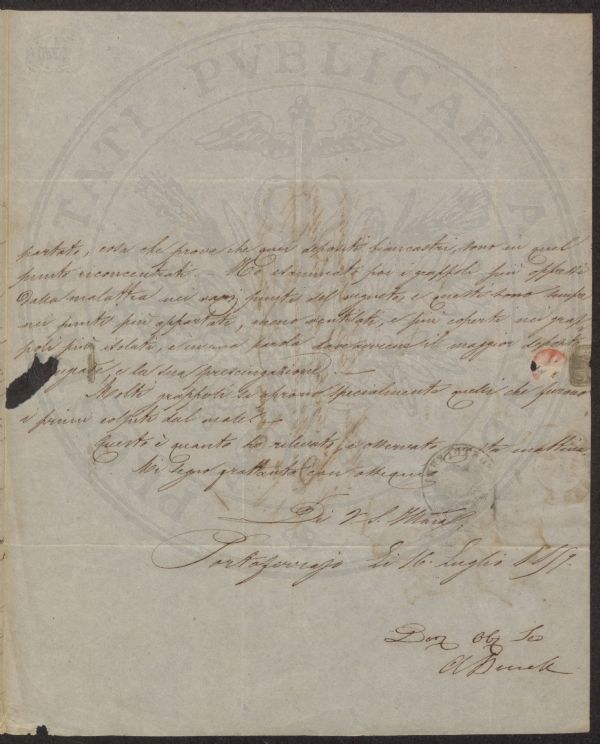 TATI PVBLICAE
portato, cosa che prova che quei depositi biancastri, sono in quel
punto riconcentrati. Ho esaminati poi i grappoli più oppressi
dalla malattia nei varj punti del vigneto, e questi sono sempre
nei punti più appartati, meno ventilati, e più coperti nei grap-
poli più isolati, il maggior deposito
e la sua
Molti grappoli si aprono specialmente quelli che furono
i primi colpiti dal male.
Questo è quanto ho rilevato e osservato sta mattina.
Mi segno frattanto con ossequio
Di V. S. Illma
Portoferrajo li 16 Luglio
Dev Obb Se